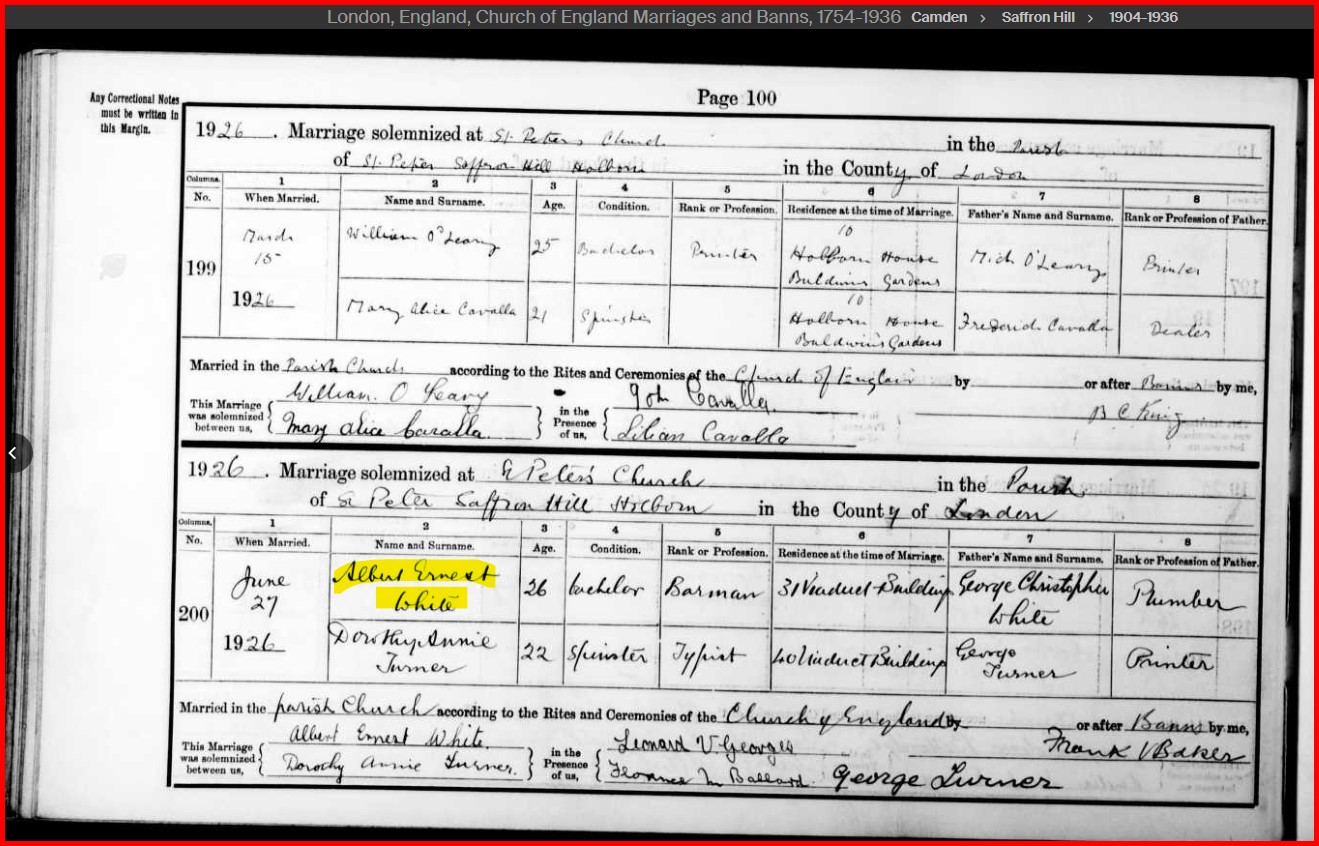 London, England, Church of England Marriages and Banns, 1754-1936 Camden › Saffron Hill › 1904-1936
Page 100
Any Correctional Notes
must be written in
this Margin.
1926. Marriage solemnized at St. Peters Church in the Parish
of St. Peter Saffron Hill Holborn in the County of London
Columns. 1 2 3 4 5 6 7 8
No. When Married. Name and Surname. Age. Condition. Rank or Profession. Residence at the time of Marriage. Father's Name and Surname. Rank or Profession of Father.
199 March 15 1926
William O'Leary 25 Bachelor Printer 10 Holborn House Baldwins Gardens Mich O'Leary Printer
Mary Alice Cavalla 21 Spinster 10 Holborn House Baldwin's Gardens Frederick Cavalla Dealer
Married in the Parish Church according to the Rites and Ceremonies of the Church of England by or after Banns by me,
This Marriage was solemnized between us, William O Leary in the Presence of us, John Cavalla B C King
Mary Alice Cavalla Lilian Cavalla
1926. Marriage solemnized at St Peter's Church in the Parish
of St Peter Saffron Hill Holborn in the County of London
Columns. 1 2 3 4 5 6 7 8
No. When Married. Name and Surname. Age. Condition. Rank or Profession. Residence at the time of Marriage. Father's Name and Surname. Rank or Profession of Father.
200 June 27 1926
Albert Ernest White 26 bachelor Barman 31 Viaduct Building George Christopher White Plumber
Dorothy Annie Turner 22 Spinster Typist 40 Viaduct Building George Turner Printer
Married in the parish Church according to the Rites and Ceremonies of the Church of England by or after Banns by me,
This Marriage was solemnized between us, Albert Ernest White in the Presence of us, Leonard V Georges Frank V Baker
Dorothy Annie Turner. Florence M Ballard. George Turner